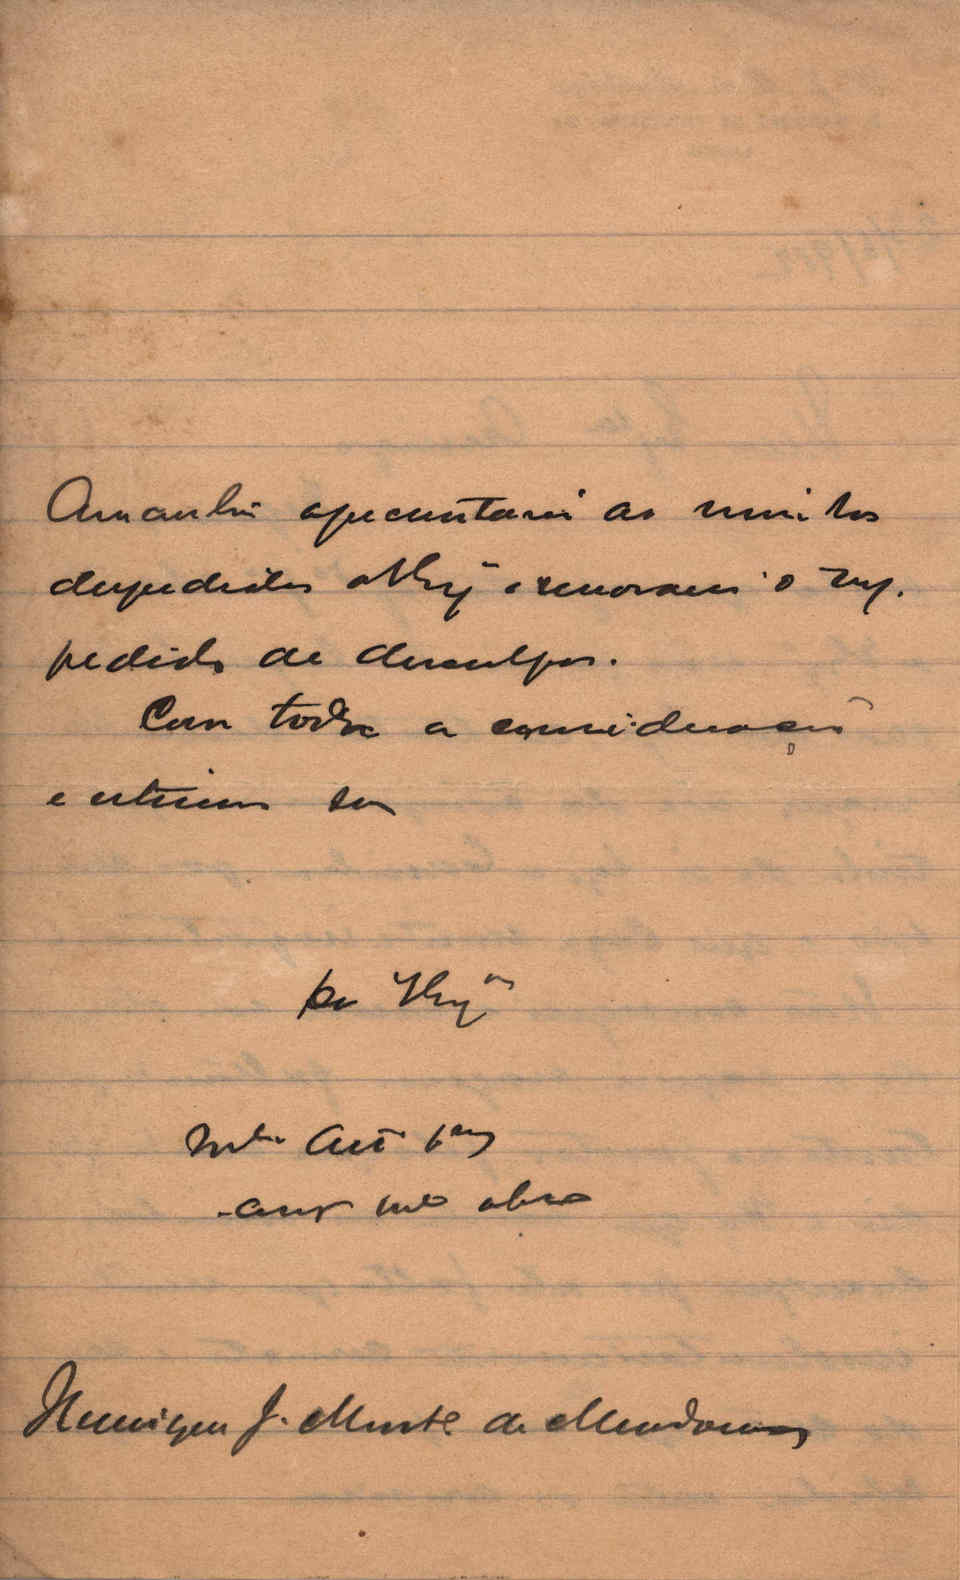 Amanhã apresentarei as minhas
despedidas a V. Exª e renovarei o
pedido de desculpas.
Com toda a consideração
e estima sou
De V. Exª
Mto Att
mto obro
Henrique J. Monte de Mendonça